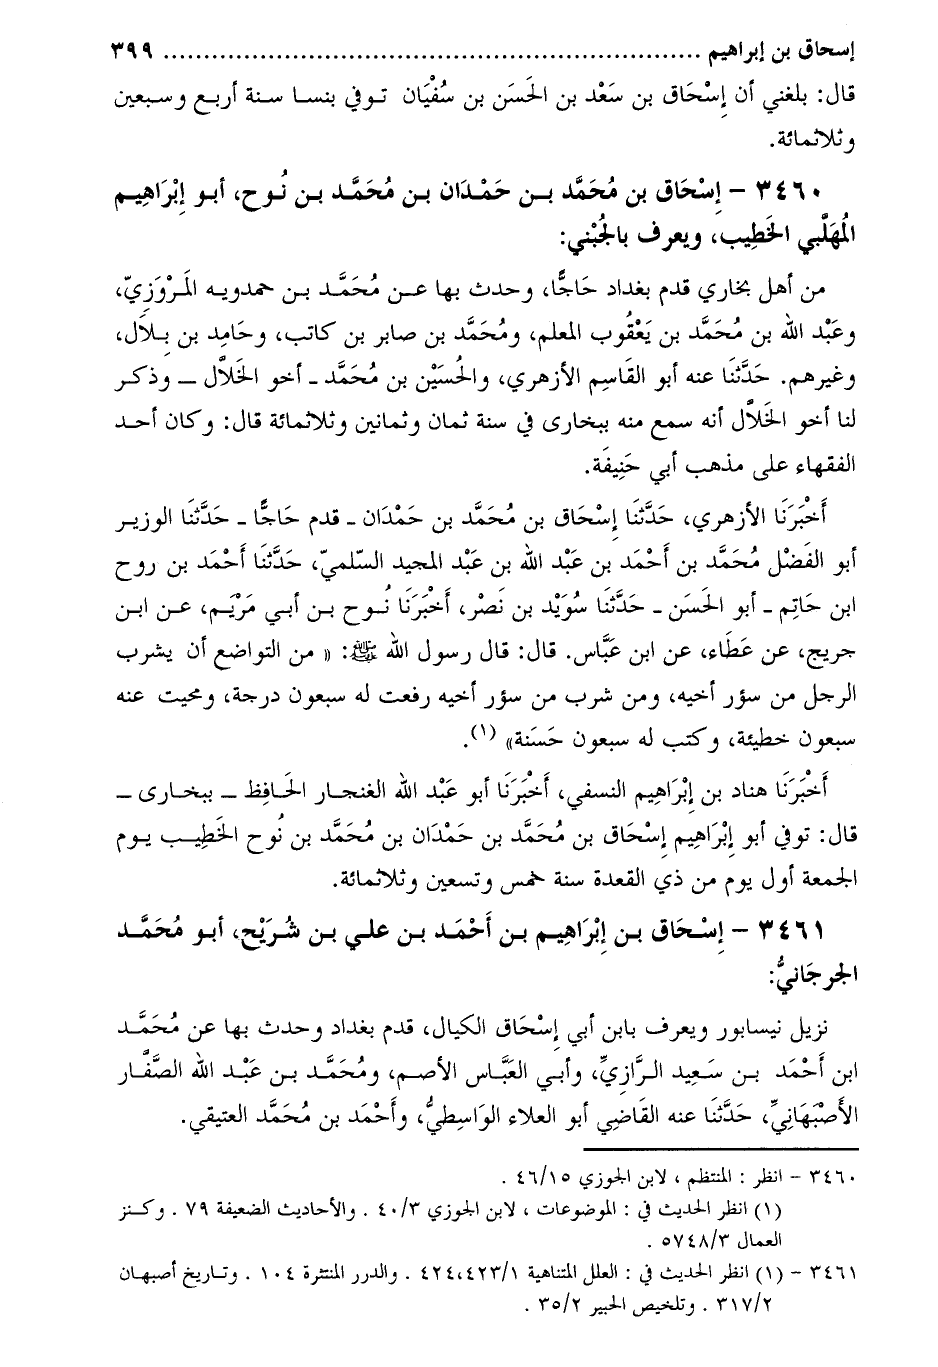 إسحاق بن إبراهيم .................................................................. ٣٩٩
قال: بلغني أن إِسْحَاق بن سَعْد بن الحَسَن بن سُفْيَان توفي بنسا سنة أربع وسبعين
وثلاثمائة.
٣٤٦٠ – إِسْحَاق بن مُحَمَّد بـن حَمْـدَان بـن مُحَمَّـد بـن نُـوح، أبـو إِبْرَاهِيـم
المُهَلَّبي الخَطِيب، ويعرف بالجُبْني:
من أهل بخاري قدم بغداد حَاجًّا، وحدث بها عـن مُحَمَّـد بـن حمدويـه المَـرْوَزِيّ،
وعَبْد الله بن مُحَمَّد بن يَعْقُوب المعلم، ومُحَمَّد بن صابر بن كاتب، وحَامِد بن بـلَال،
وغيرهم. حَدَّثَنا عنه أبو القَاسِم الأزهري، والحُسَيْن بن مُحَمَّد ـ أخو الخَلَّال ـ وذكـر
لنا أخو الخَلَّال أنه سمع منه ببخارى في سنة ثمان وثمانين وثلاثمائة قال: وكان أحـد
الفقهاء على مذهب أبي حَنِيفَة.
أَخْبَرَنَا الأزهري، حَدَّثَنَا إِسْحَاق بن مُحَمَّد بن حَمْدَان ـ قدم حَاجًّا ـ حَدَّثَنَا الوزيـر
أبو الفَضْل مُحَمَّد بن أَحْمَد بن عَبْد الله بن عَبْد المجيد السّلميّ، حَدَّثَنا أَحْمَد بن روح
ابن حَاتِم ـ أبو الحَسَن ـ حَدَّثَنَا سُوَيْد بن نَصْر، أَخْبَرَنَا نُـوح بـن أبـي مَرْيَـم، عـن ابـن
جريج، عن عَطَاء، عن ابن عَبَّاس. قال: قال رسول الله ﷺ: « من التواضع أن يشرب
الرجل من سؤر أخيه، ومن شرب من سؤر أخيه رفعت له سبعون درجة، ومحيت عنه
سبعون خطيئة، وكتب له سبعون حَسَنة» (١).
أَخْبَرَنَا هناد بن إِبْرَاهِيم النسفي، أَخْبَرَنَا أبو عَبْد الله الغنجار الحَافِظ ـ ببخـارى ـ
قال: توفي أبو إِبْرَاهِيم إِسْحَاق بن مُحَمَّد بن حَمْدَان بن مُحَمَّد بن نُوح الخَطِيـب يـوم
الجمعة أول يوم من ذي القعدة سنة خمس وتسعين وثلاثمائة.
٣٤٦١ – إِسْحَاق بـن إِبْرَاهِيـم بـن أَحْمَـد بـن علـي بـن شُرَيْح، أبـو مُحَمَّـد
الجرجَانيُّ:
نزيل نيسابور ويعرف بابن أبي إِسْحَاق الكيال، قدم بغداد وحدث بها عن مُحَمَّـد
ابن أَحْمَد بـن سَعِيد الـرَّازِيِّ، وأبـي العَبَّـاس الأصـم، ومُحَمَّـد بـن عَبْـد الله الصَّفَّـار
الأَصْبَهَانِيِّ، حَدَّثَنَا عنه القَاضِي أبو العلاء الوَاسِطيُّ، وأَحْمَد بن مُحَمَّد العتيقي.
٣٤٦٠ – انظر : المنتظم ، لابن الجوزي ٤٦/١٥ .
(١) انظر الحديث في : الموضوعات ، لابن الجوزي ٤٠/٣ . والأحاديث الضعيفة ٧٩ . وكـنز
العمال ٥٧٤٨/٣ .
٣٤٦١ – (١) انظر الحديث في : العلل المتناهية ٤٢٤،٤٢٣/١ . والدرر المنتثرة ١٠٤ . وتـاريخ أصبهـان
٣١٧/٢ . وتلخيص الحبير ٣٥/٢ .